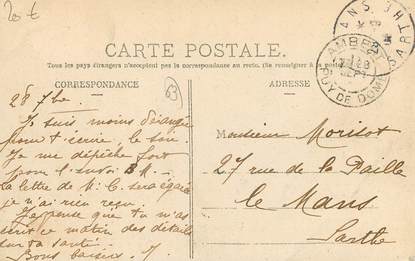 20 €
CARTE POSTALE.
Tous les pays étrangers n'acceptent pas la correspondance au recto. (Se renseigner à la poste)
CORRESPONDANCE
ADRESSE
63
MANS SARTHE
AMBERT
PUY DE DOME
28 7bre
Je suis moins dérangé
pour t'écrire le soir.
Je me dépêche fort
pour
la lettre de M. C. sera égarée
je n'ai rien reçu.
Je pense que tu m'as
écrit ce matin des détails
sur ta santé.
Bons baisers. J.
Monsieur Morisot
27 rue de la Paille
le Mans
Sarthe